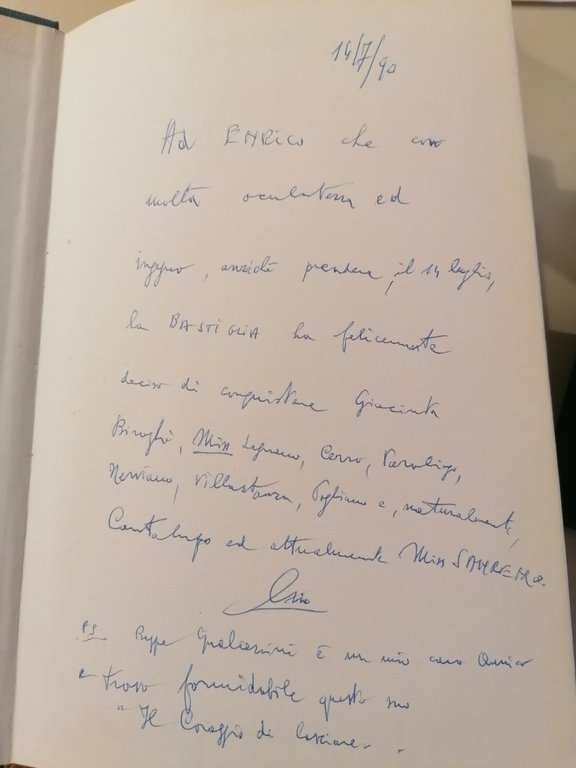 14/7/90
Ad ENRICO che con
molta oculatezza ed
ingegno, anziché prendere, il 14 luglio,
la BASTIGLIA ha felicemente
deciso di conquistare Giacinta
Biraghi, Miss Legnano, Cerro,
Nerviano, Villastanza, Pogliano e, naturalmente,
Cantalupo ed attualmente Miss SANPIETRO.
PS. Beppe è un mio caro amico
e trovo formidabile questo suo
"Il Coraggio di lasciare".